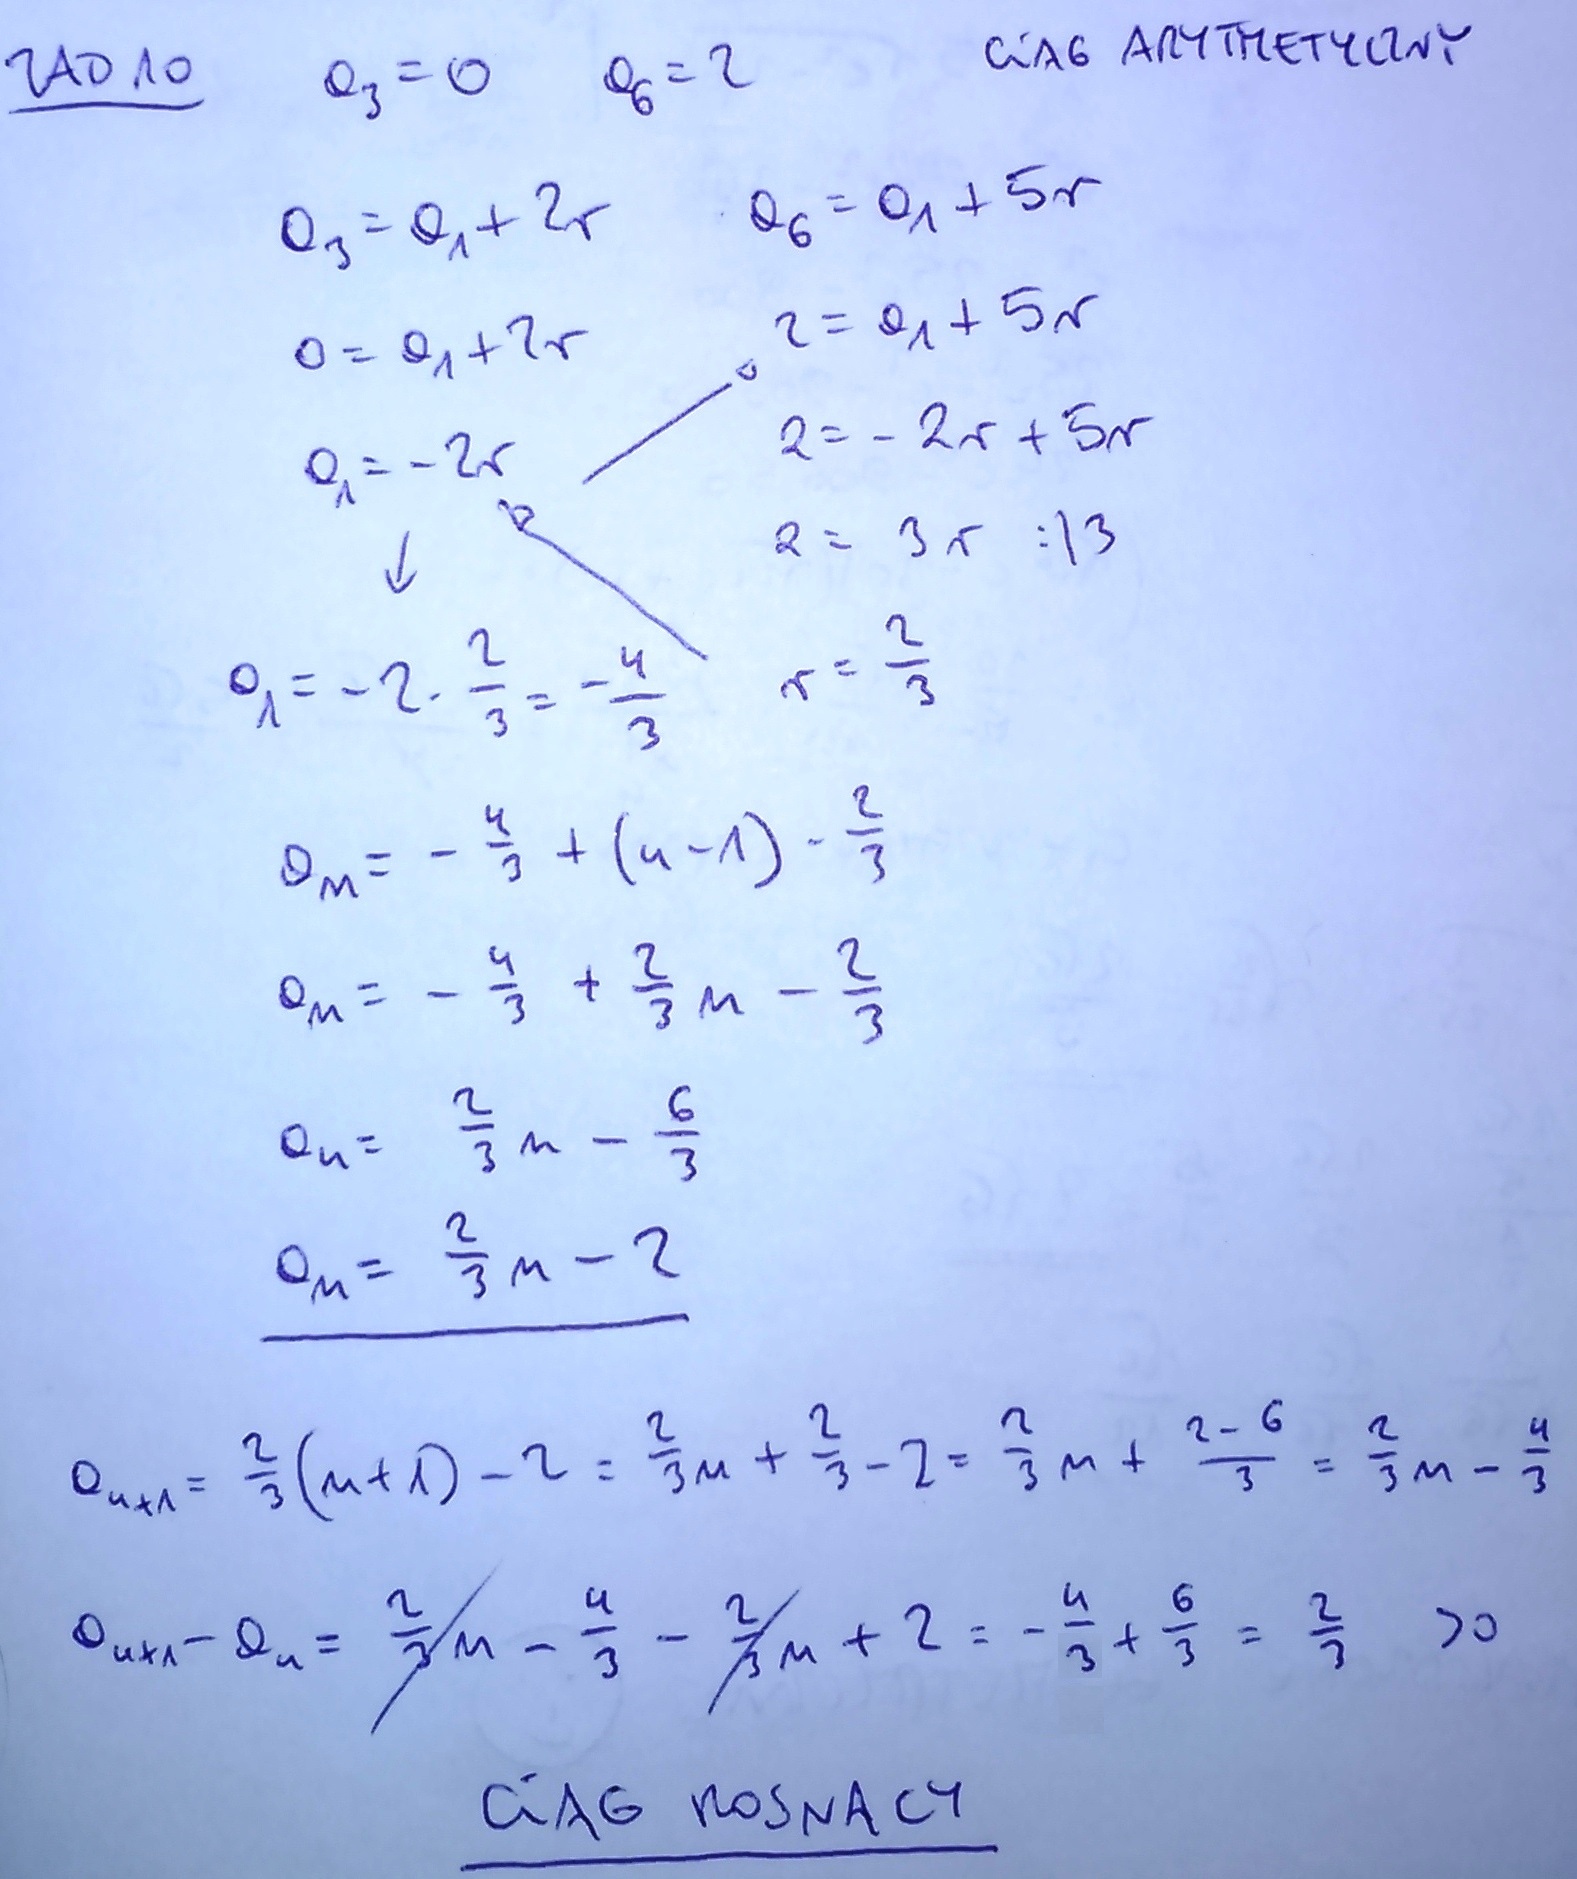 ZAD 10 a₃ = 0 a₆ = 2 CiAG ARYTMETYCZNY
a₃ = a₁ + 2r a₆ = a₁ + 5r
0 = a₁ + 2r 2 = a₁ + 5r
a₁ = -2r 2 = -2r + 5r
2 = 3r :/3
a₁ = -2 · 2/3 = -4/3 r = 2/3
aₙ = -4/3 + (n-1) · 2/3
aₙ = -4/3 + 2/3 n - 2/3
aₙ = 2/3 n - 6/3
aₙ = 2/3 n - 2
aₙ₊₁ = 2/3 (n+1) - 2 = 2/3 n + 2/3 - 2 = 2/3 n + (2-6)/3 = 2/3 n - 4/3
aₙ₊₁ - aₙ = 2/3 n - 4/3 - 2/3 n + 2 = -4/3 + 6/3 = 2/3 >0
CiAG ROSNACY